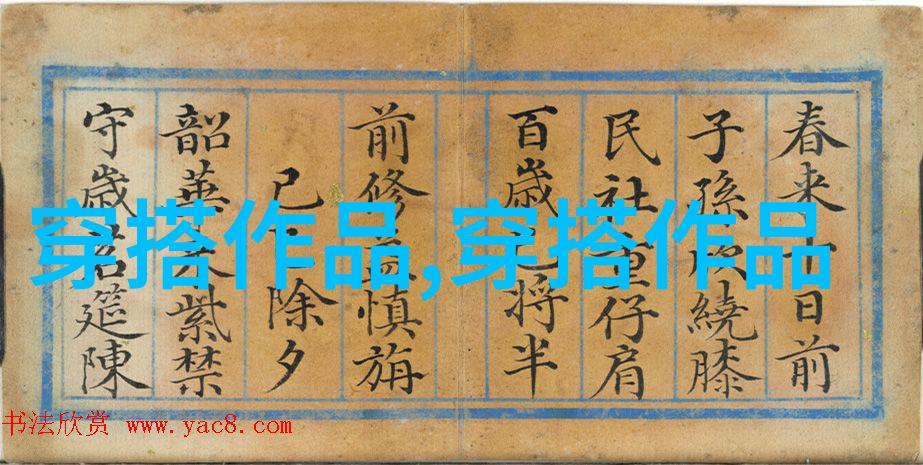 春来十日前
子孫欣繞膝
民社重仔肩
百歲已將半
前修益慎旃
己巳除夕
韶華来紫禁
守歲筵陳
穿搭作品,穿搭作品
书法欣赏 www.yac8.com